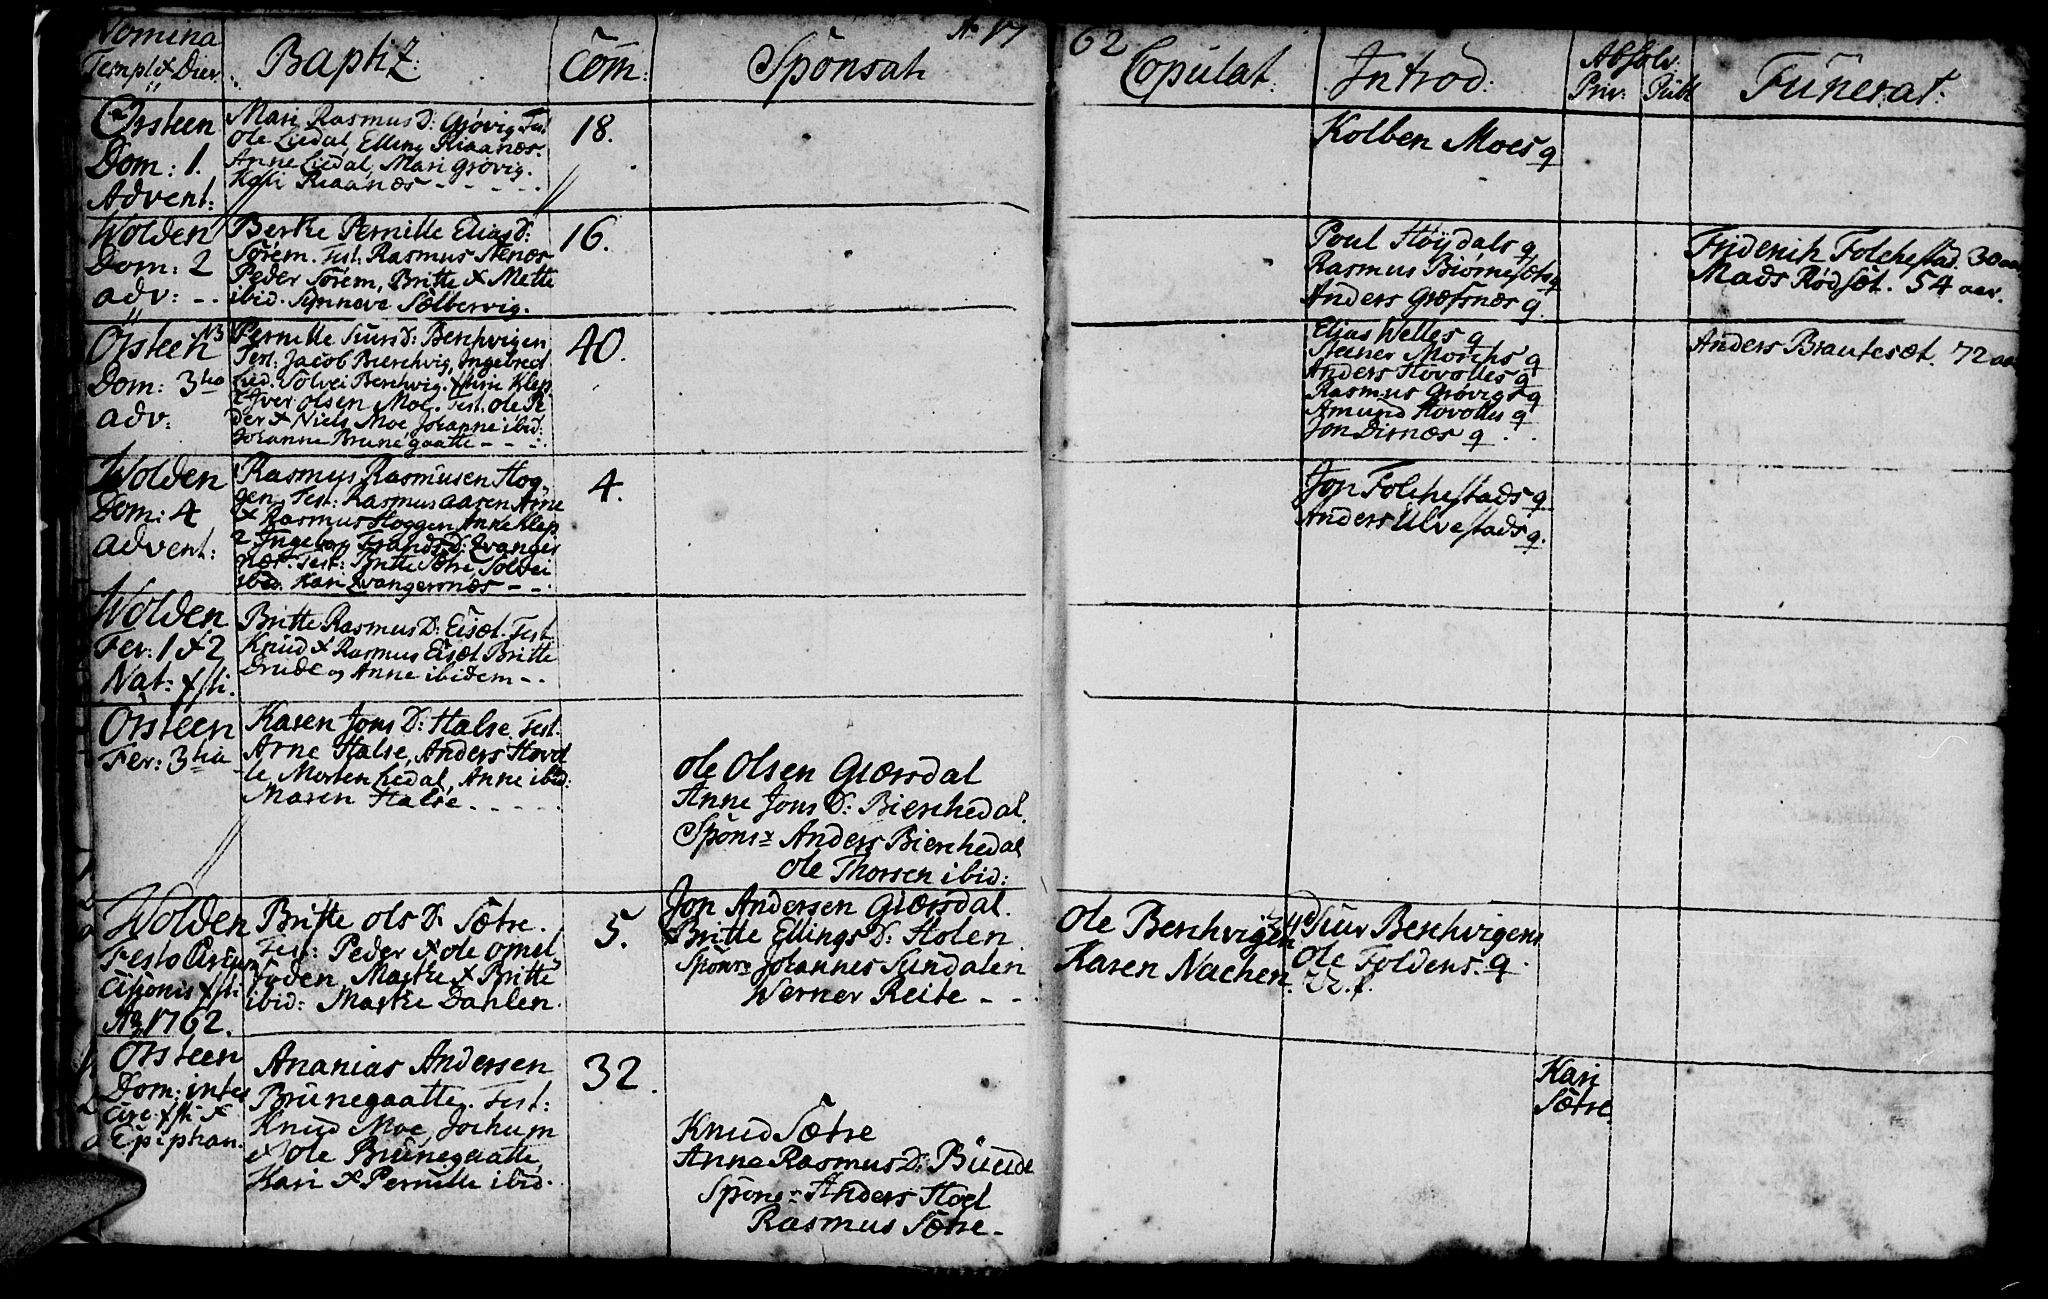 Nomina
Templ. & Dier.
Baptiz:
Com:
Sponsat
Ao 17
62
Copulat:
Introd:
Absolv:
Priv:
Publ
Funerat:
Ørsteen
Dom: 1.
Advent:
Mari Rasmus D: Grøvig Test
Ole Liedal, Elling Riaanæs.
Anne Liedal, Mari Grøvig.
Kari Riaanæs
18.
Kolben Moes q
Wolden
Dom: 2
adv:
Berte Pernille Elias D:
Sørem. Test. Rasmus Stenæs
Peder Sørem, Britte & Mette
ibid. Synneve Sælbervig.
16.
Poul Høydals q
Rasmus Biørnesæts q
Anders Græsnæs q.
Friderich Folchestad. 30 aar
Mads Rødsæt. 54 aar.
Ørsteen
Dom: 3tia
adv:
Pernille Siurs D: Berchvigen
Test: Jacob Bierchvig, Ingebrecl
Lied. Solvei Berchvig. Klep
Olsen Moe. Test. ole Pe
der & Niels Moe, Johanne ibid:
Johanne Brunegaatte
40.
Elias Welles q
Steener Morchs q
Anders Hovolles q
Rasmus Grøvigs q
Amund Hovolles q
Jon Dirnæs q.
Anders Brautesæt. 72 aa
Wolden
Dom: 4
advent:
Rasmus Rasmusen Hog,
gen, Test: Rasmus Aasen Arne
& Rasmus Hoggen Anne Klep
2 Ingeborg D: Evanger
næs. Test: Sætre, Solvei
ibid. Kari Evangersnæs
4.
Jon Folchestads q
Anders Ulvestads q.
Wolden
Fer: 1 & 2
Nat: Xsti.
Britte Rasmus D: Eisæt. Test
Knud & Rasmus Eisæt Britte
Drude og Anne ibidem
Orsteen
Fer: 3tia
Karen Jons D: Halse. Test.
Arne Halse, Anders Hovd
le, Morten Ledal, Anne ibid:
Maren Halse
Ole Olsen Giærsdal
Anne Jons D: Bierchedal.
Spons: Anders Bierchedal
Ole Thorsen ibid:
Wolden
Festo Circum
cisionis Xsti
Ao 1762.
Britte Ols D: Sætre.
Test: Peder & Ole Omel,
foden, Marte & Britte
ibid: Marte Dahlen.
5.
Jon Andersen Giærsdal.
Britte Ellings D: Holen
Spons: Johannes Sundalen
Werner Reite
Ole Berchvigen
Karen Nachen
Siur Berchvigens
Ole Foldens. q.
Orsteen
Dom: inter
Circ. Xsti &
Epiphan.
Ananias Andersen
Brunegaatte. Test:
Knud Moe, Jochum
& Ole Brunegaatte,
Kari & Pernille ibid.
32.
Knud Sætre
Anne Rasmus D: Bunde
Spons: Anders Hoel
Rasmus Sætre
Kari
Sætre